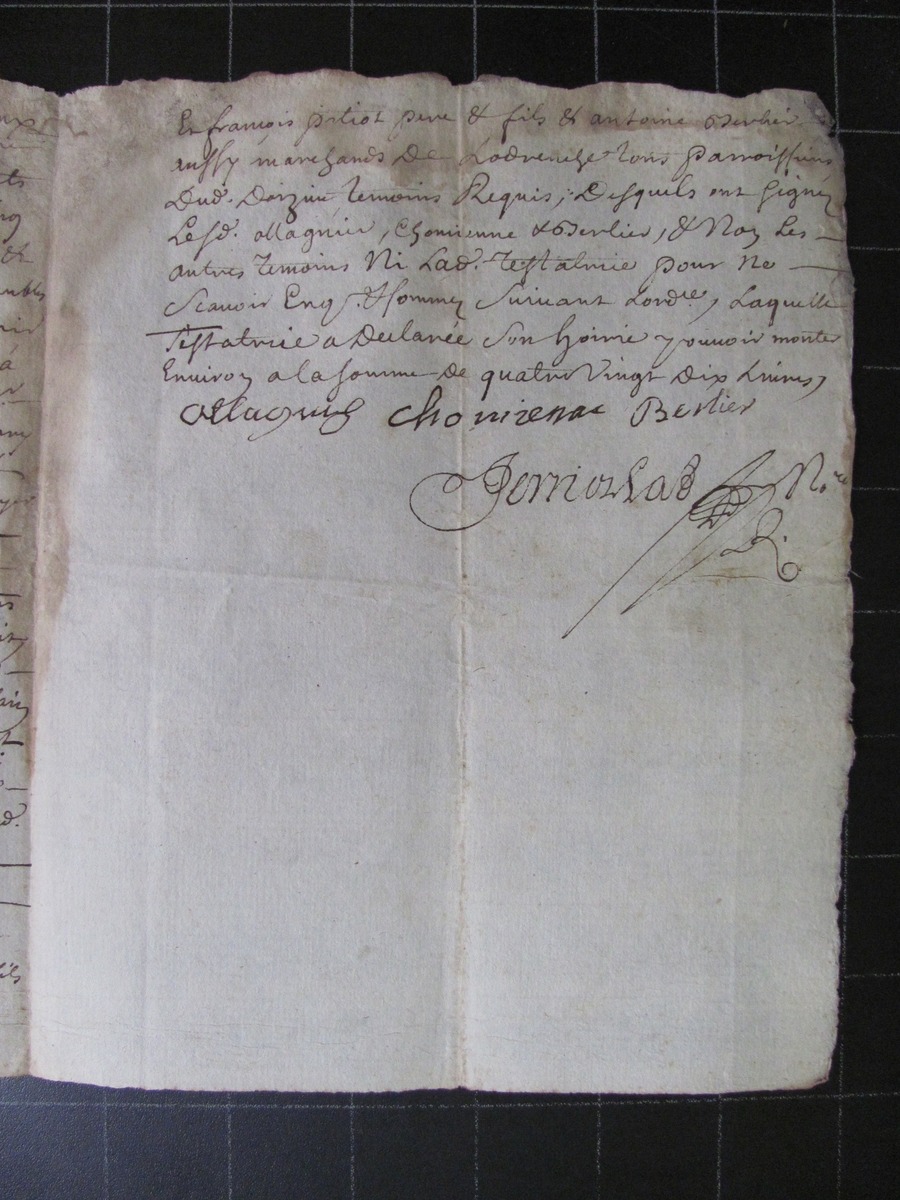 Et françois pitiot pere & fils & antoine Berlier
aussy marchands de tous parroissiens
Dud. Doizieu temoins Requis, Desquels ont signé
Lesd. allagnier, Chomienne & Berlier, & Non Les
autres temoins Ni Lad. Testatrice pour ne
Scavoir Enq. & sommés suivant Lord.ce, Laquelle
Testatrice a Declarée Son hoirie pouvoir monter
Environ a la somme de quatre Vingt Dix Livres,
Chomienne Berlier
No.re
R.